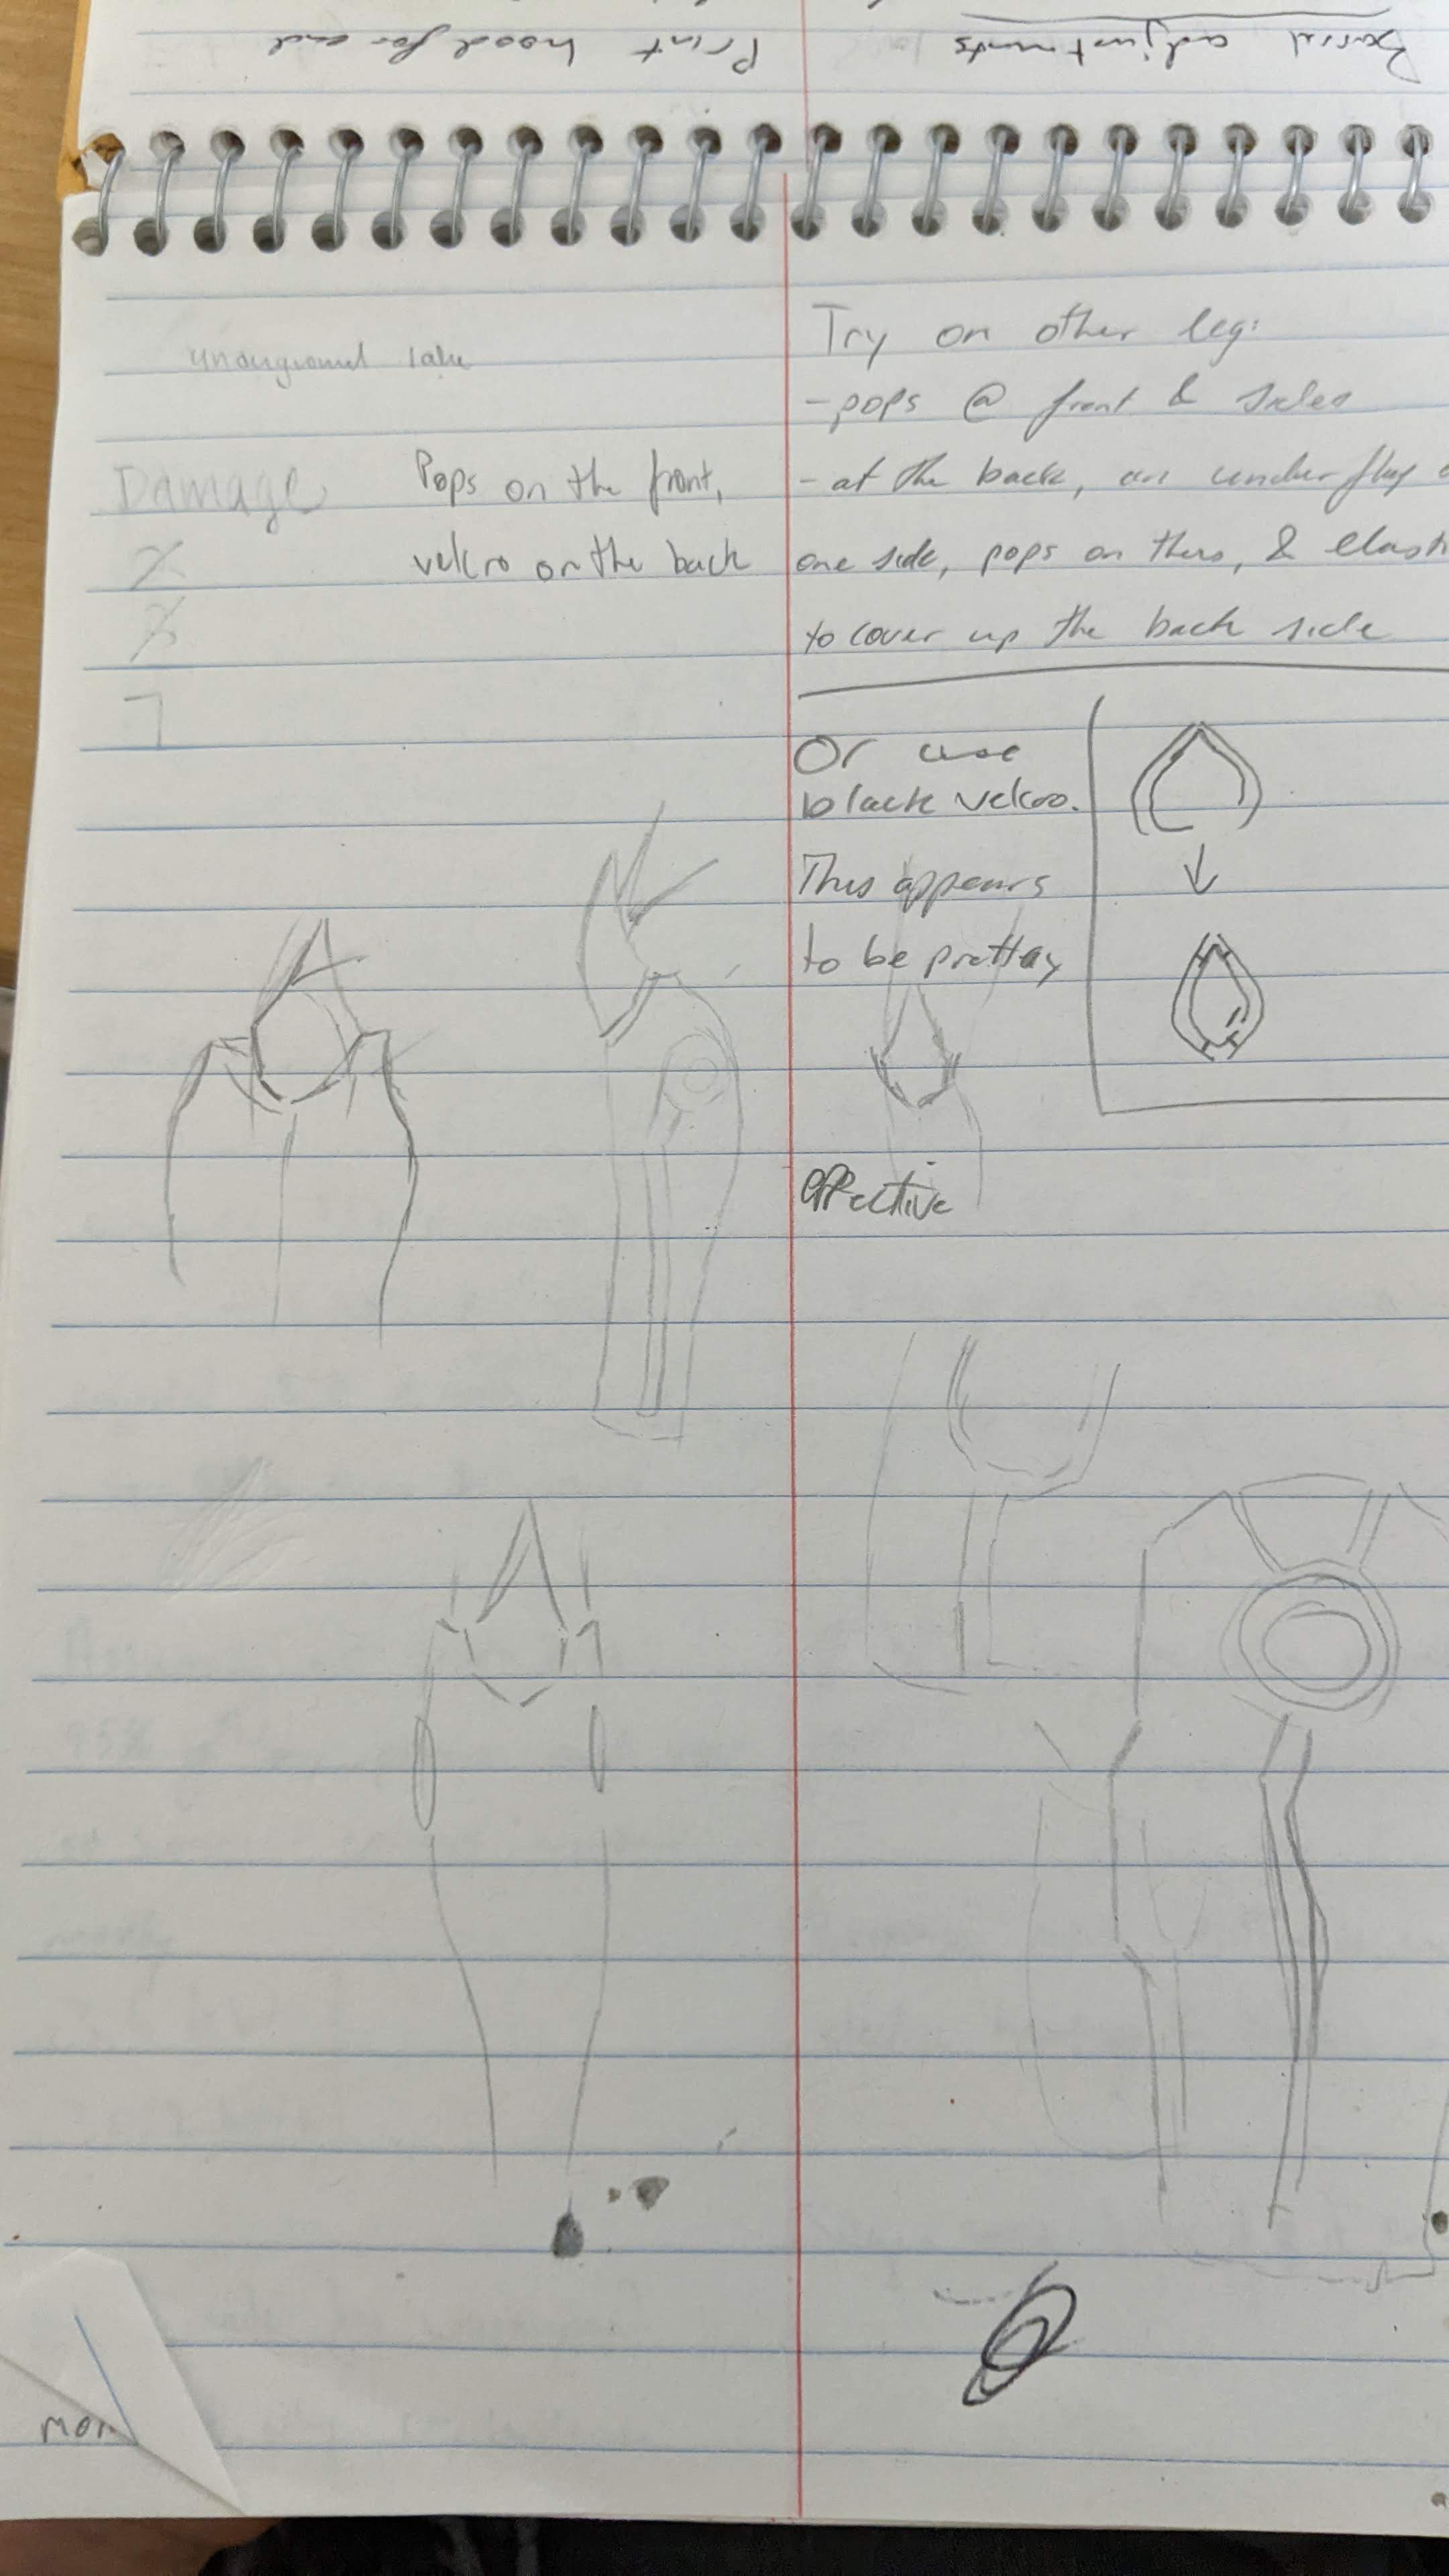 Print hood for end
Basic adjustments
underground lake
Damage
2
3
7
Pops on the front,
velcro on the back
Try on other leg:
- pops @ front & sides
- at the back, an under flap
one side, pops on this, & elasti
to cover up the back side
Or use
black velcro.
This appears
to be prettay
effective
mon